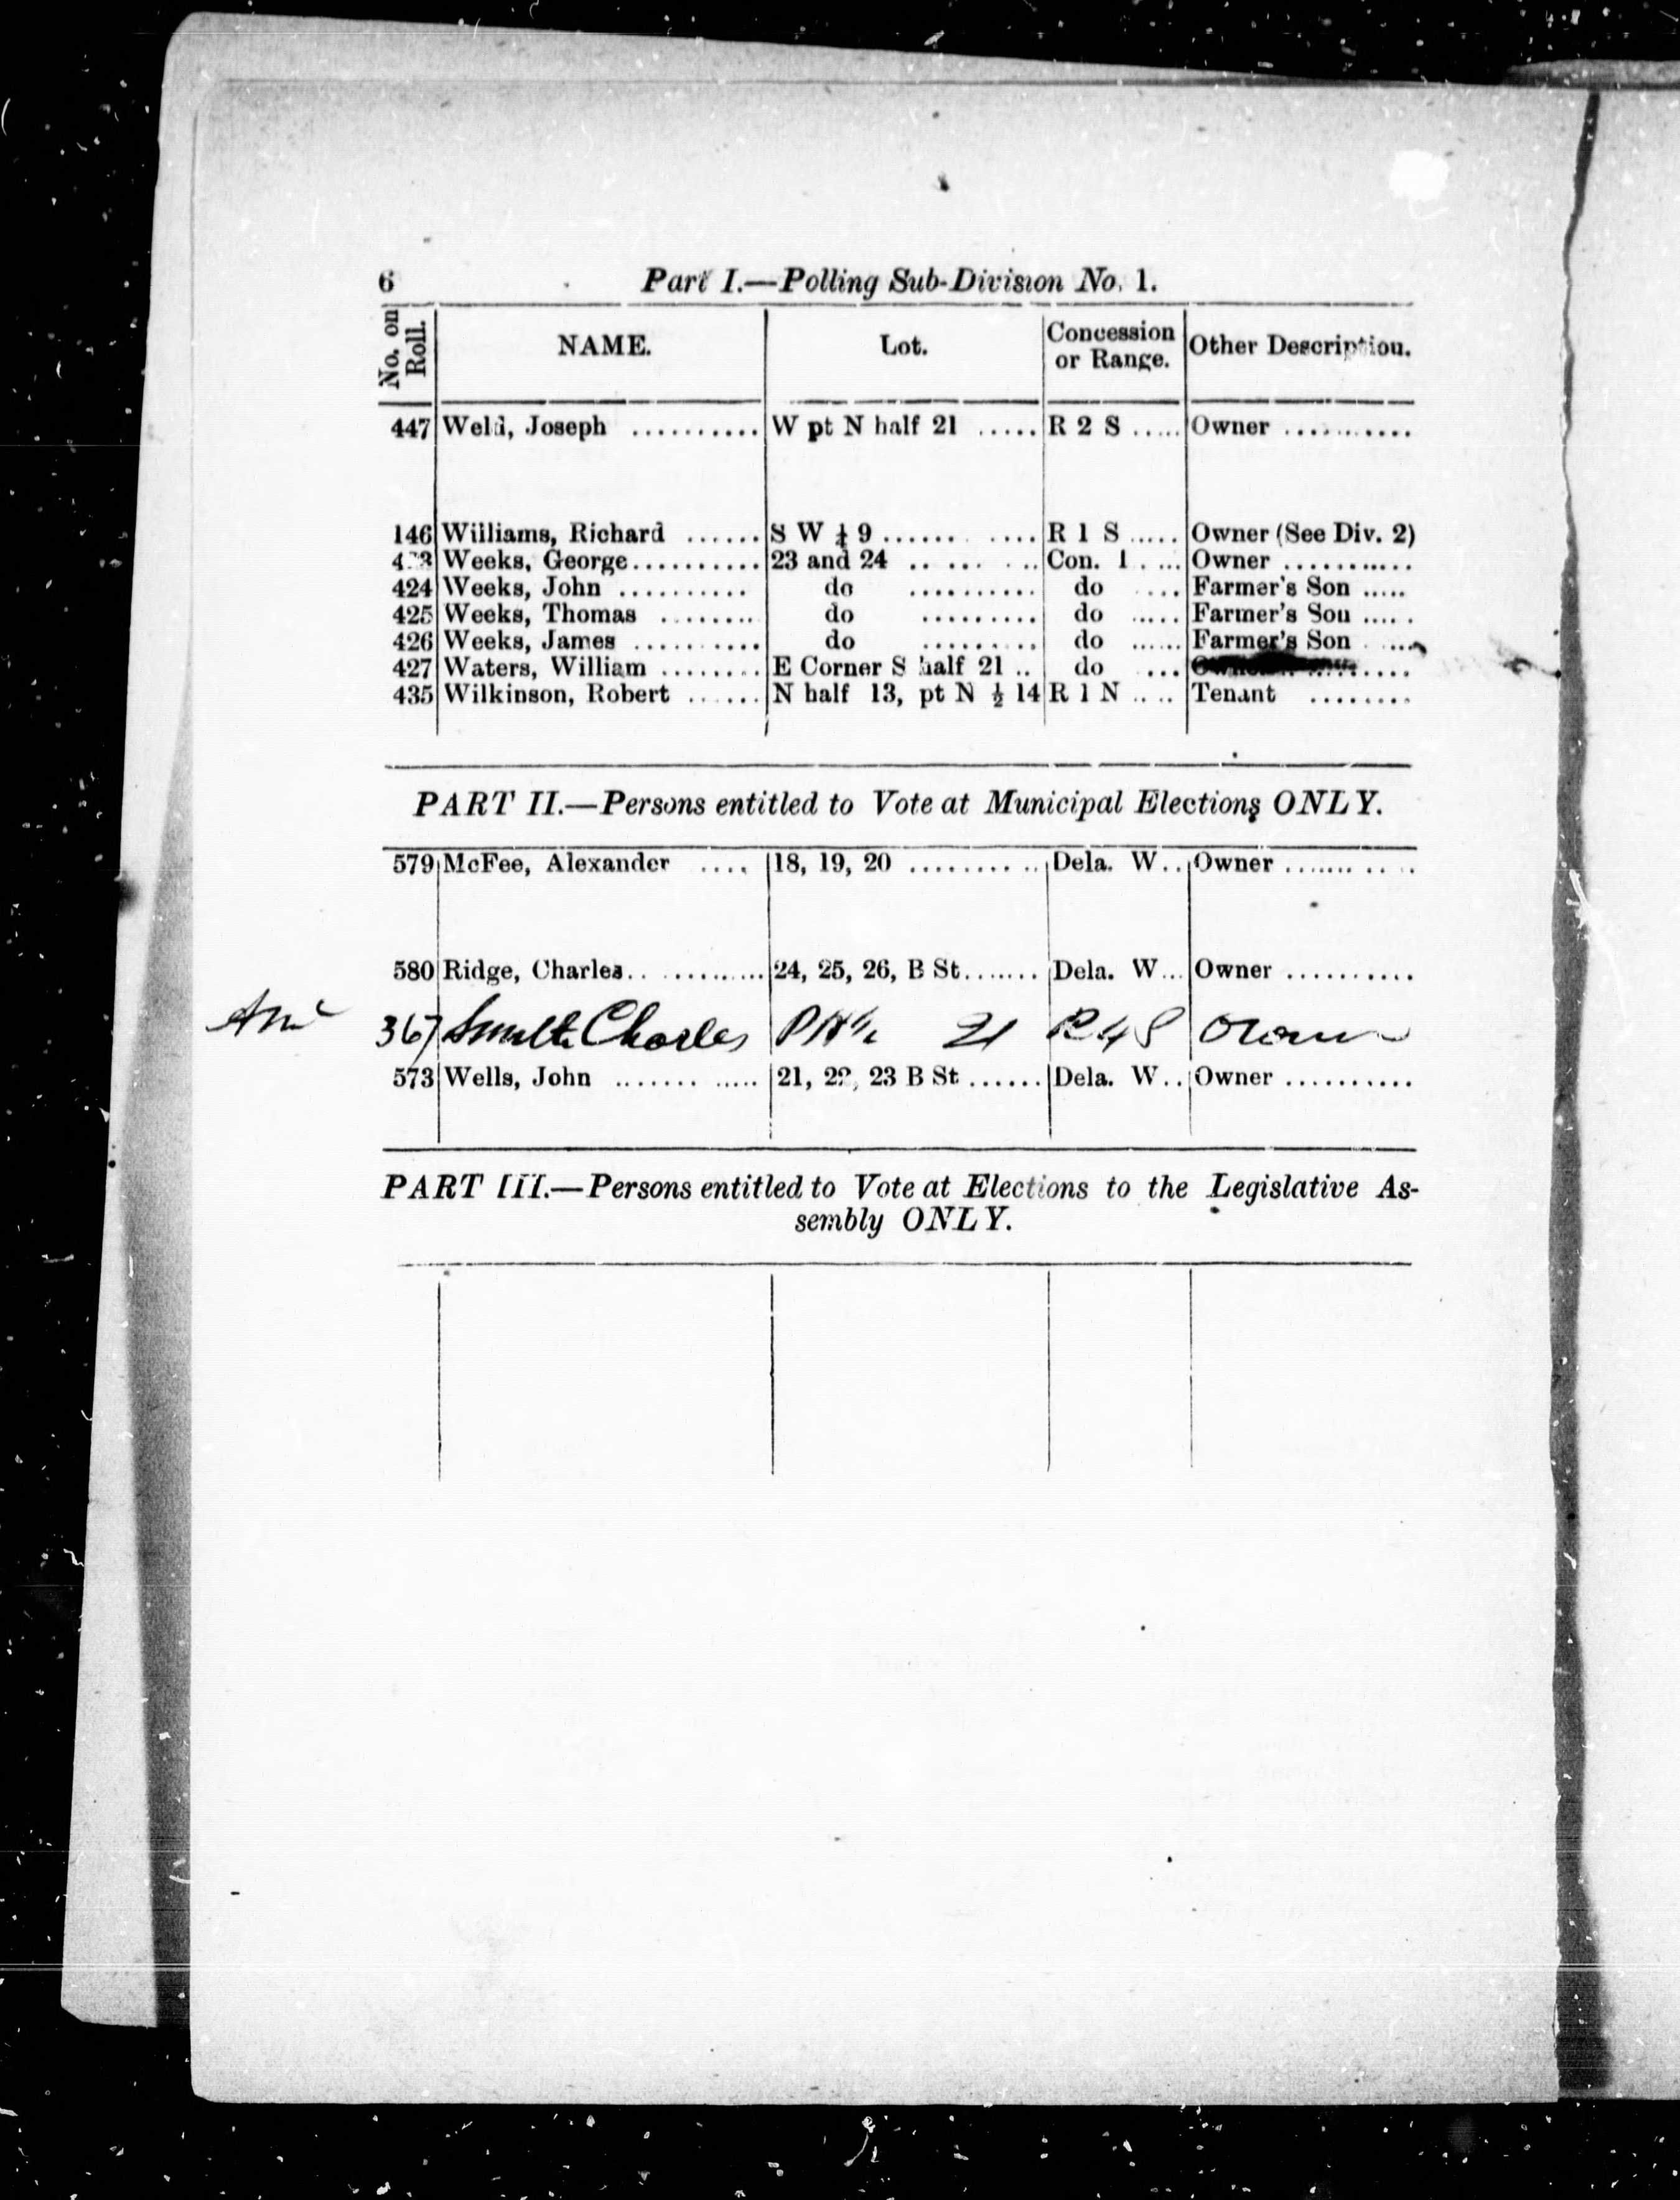 6 Part I.—Polling Sub-Division No. 1.
No. on Roll. NAME. Lot. Concession or Range. Other Description.
447 Weld, Joseph .......... W pt N half 21 ..... R 2 S ..... Owner ...........
146 Williams, Richard ...... S W ¼ 9 ........... R 1 S ..... Owner (See Div. 2)
423 Weeks, George.......... 23 and 24 .......... Con. 1 ..... Owner ...........
424 Weeks, John .......... do .......... do .... Farmer's Son .....
425 Weeks, Thomas ........ do ......... do ..... Farmer's Son .....
426 Weeks, James .......... do ......... do ...... Farmer's Son .....
427 Waters, William ........ E Corner S half 21 .. do ...
435 Wilkinson, Robert ...... N half 13, pt N ½ 14 R 1 N .... Tenant ........
PART II.—Persons entitled to Vote at Municipal Elections ONLY.
579 McFee, Alexander .... 18, 19, 20 .......... Dela. W.. Owner ..........
580 Ridge, Charles............. 24, 25, 26, B St....... Dela. W... Owner ..........
367 Smith Charles 21 R 4 S Owner
573 Wells, John ............ 21, 22, 23 B St ...... Dela. W.. Owner ..........
PART III.—Persons entitled to Vote at Elections to the Legislative As-
sembly ONLY.